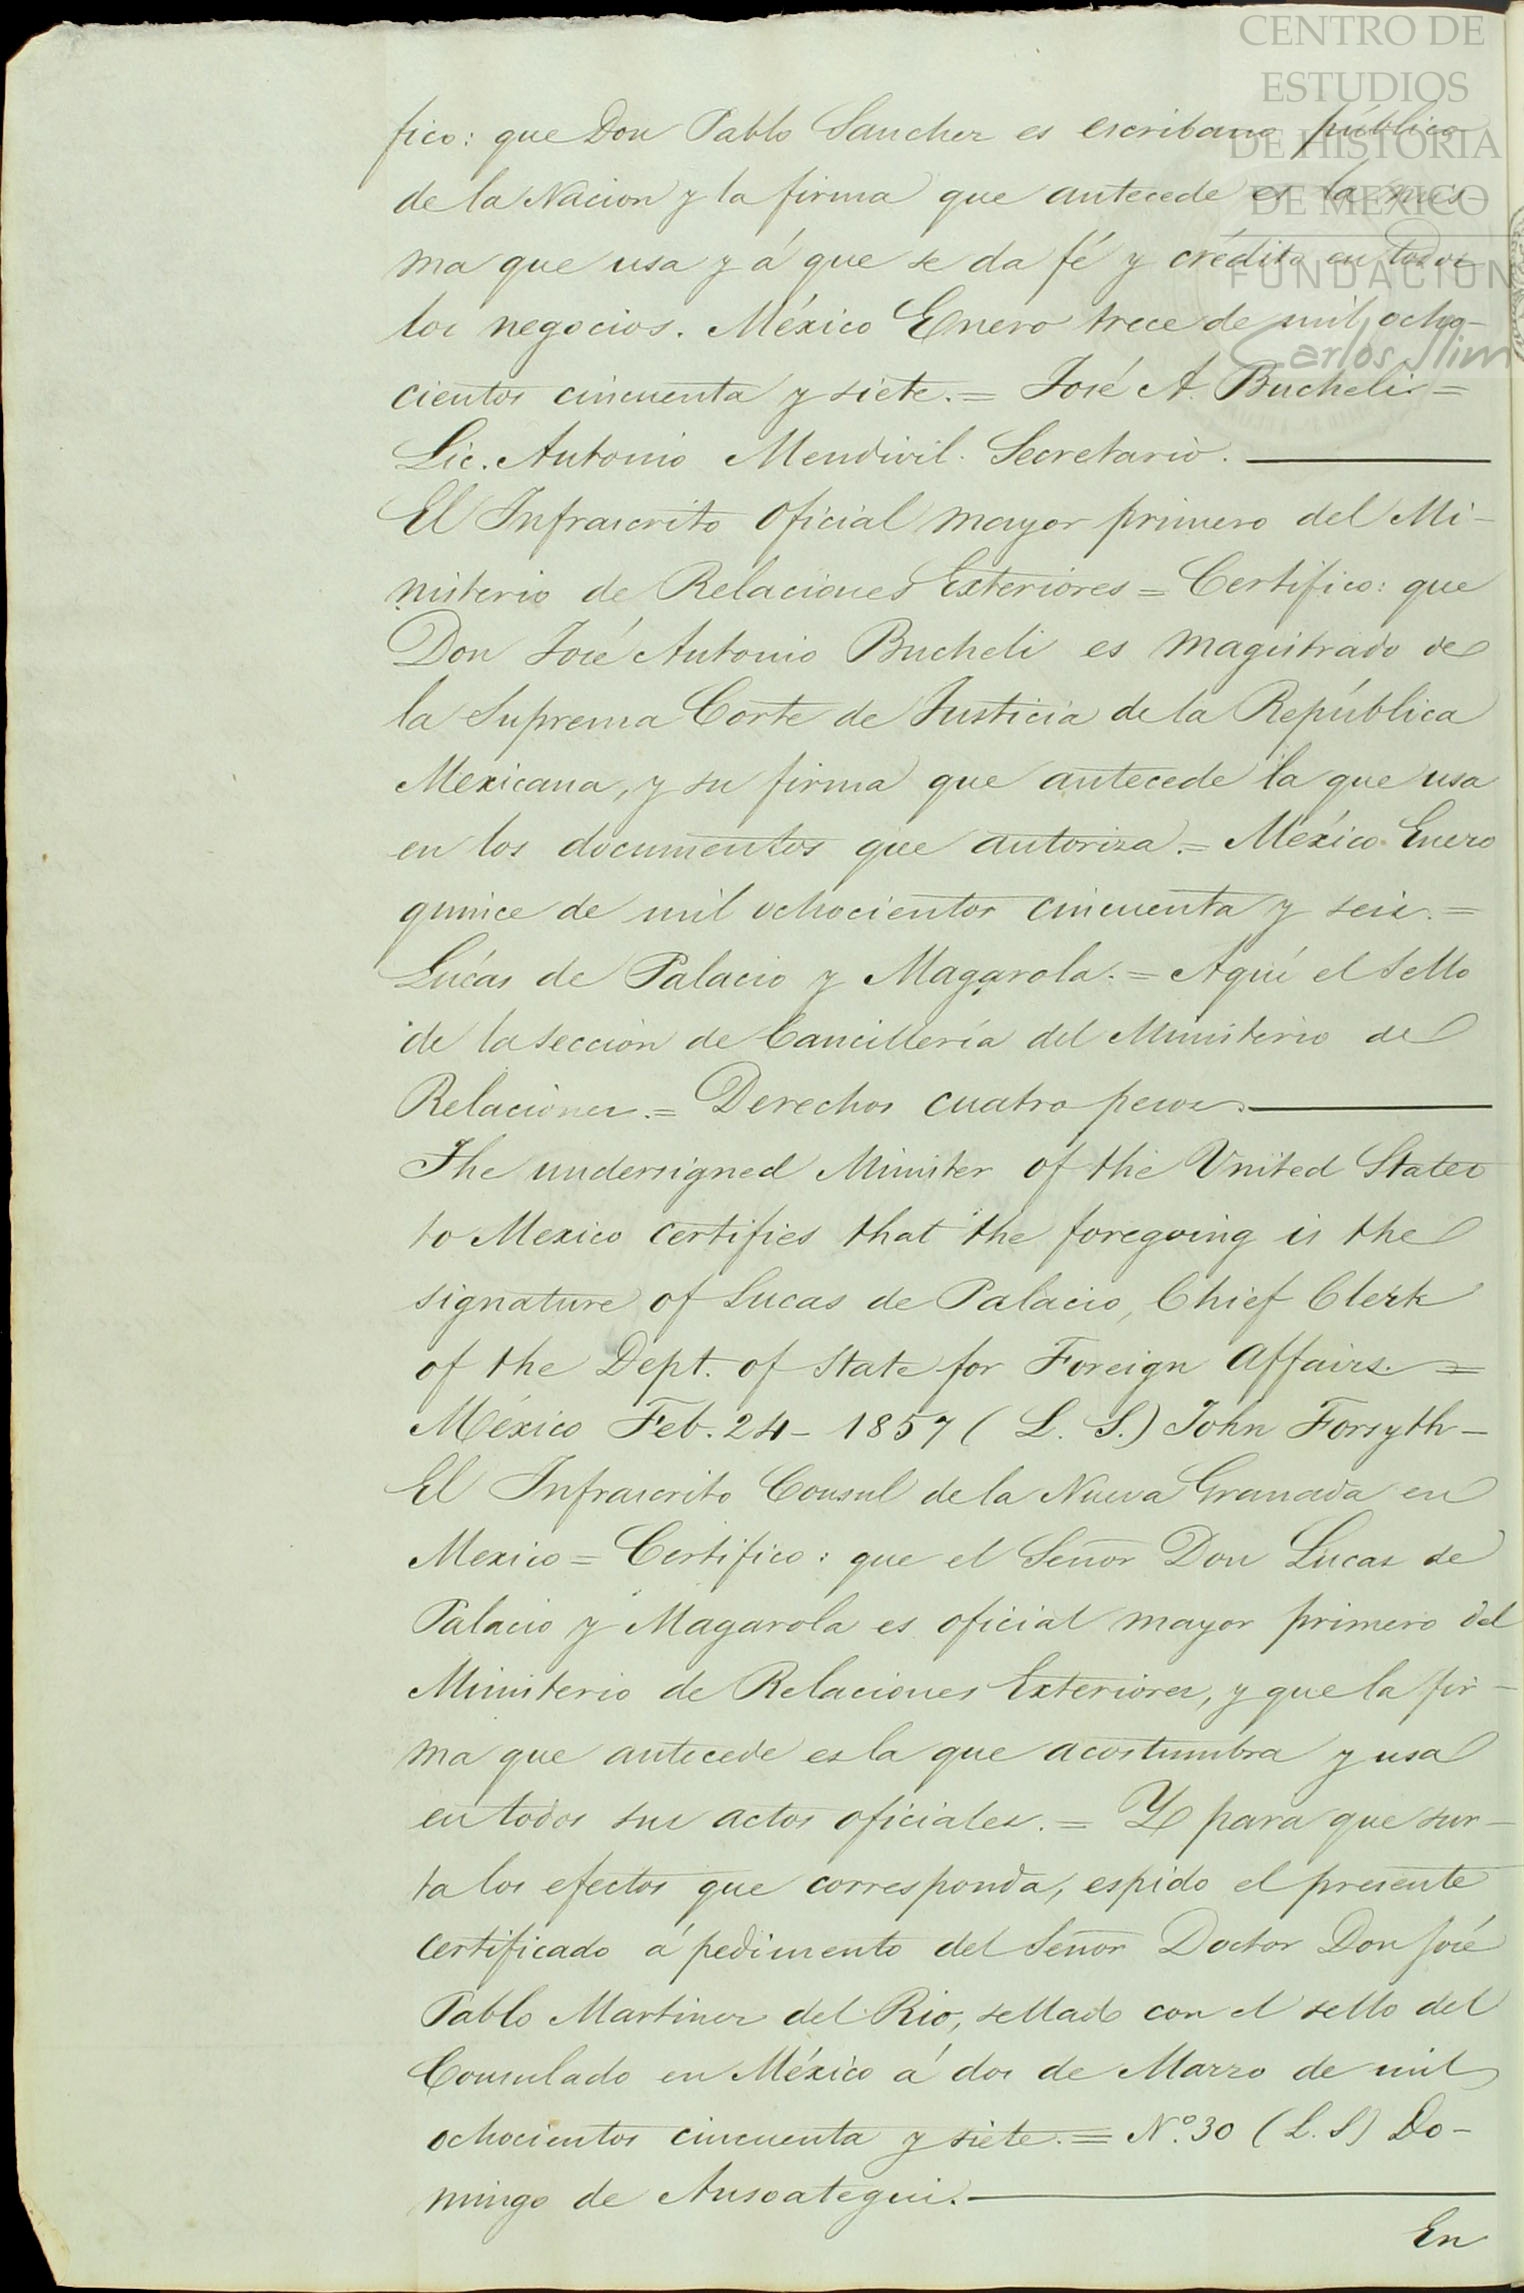 CENTRO DE
ESTUDIOS
DE HISTORIA
DE MÉXICO
FUNDACIÓN
Carlos Slim
fico: que Don Pablo Sanchez es escribano público
de la Nacion y la firma que antecede es la mis-
ma que usa y á que se da fé y crédito en todos
los negocios. México Enero trece de mil ocho-
cientos cincuenta y siete. = José A. Bucheli =
Lic. Antonio Mendivil. Secretario.
El Infrascrito Oficial mayor primero del Mi-
nisterio de Relaciones Exteriores = Certifico: que
Don José Antonio Bucheli es Magistrado de
la Suprema Corte de Justicia de la República
Mexicana, y su firma que antecede la que usa
en los documentos que autoriza. = México Enero
quince de mil ochocientos cincuenta y seis. =
Lúcas de Palacio y Magarola. = Aquí el sello
de la seccion de Cancillería del Ministerio de
Relaciones. = Derechos cuatro pesos.
The undersigned Minister of the United States
to Mexico certifies that the foregoing is the
signature of Lucas de Palacio, Chief Clerk
of the Dept. of State for Foreign Affairs. =
México Feb. 24 - 1857 ( L. S.) John Forsyth -
El Infrascrito Consul de la Nueva Granada en
Mexico = Certifico: que el Señor Don Lucas de
Palacio y Magarola es oficial mayor primero del
Ministerio de Relaciones Exteriores, y que la fir-
ma que antecede es la que acostumbra y usa
en todos sus actos oficiales. = Y para que sur-
ta los efectos que corresponda, espido el presente
certificado á pedimento del Señor Doctor Don José
Pablo Martinez del Rio, sellado con el sello del
Consulado en México á dos de Marzo de mil
ochocientos cincuenta y siete. = Nº. 30 (L. S) Do-
mingo de Ansoategui.
En